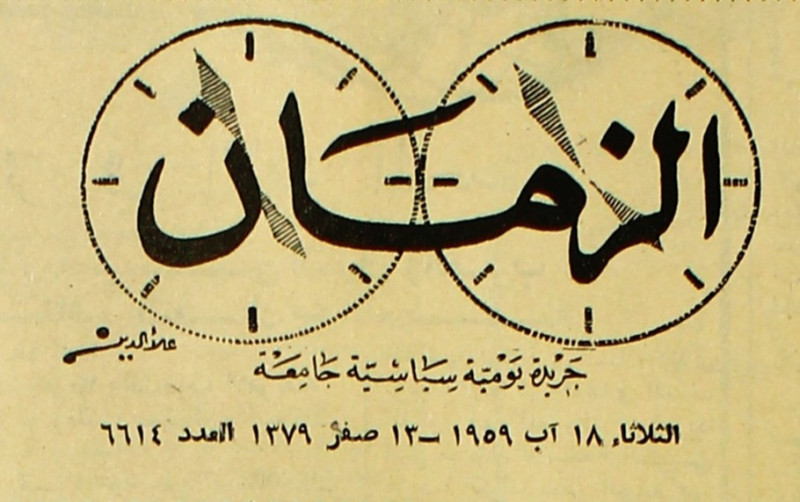 الزمان
علاءالدين
جَرِيْدة يَوْميّة سِيَاسِيّة جَامِعَة
الثلاثاء ١٨ آب ١٩٥٩ – ١٣ صفر ١٣٧٩ العدد ٦٦١٤